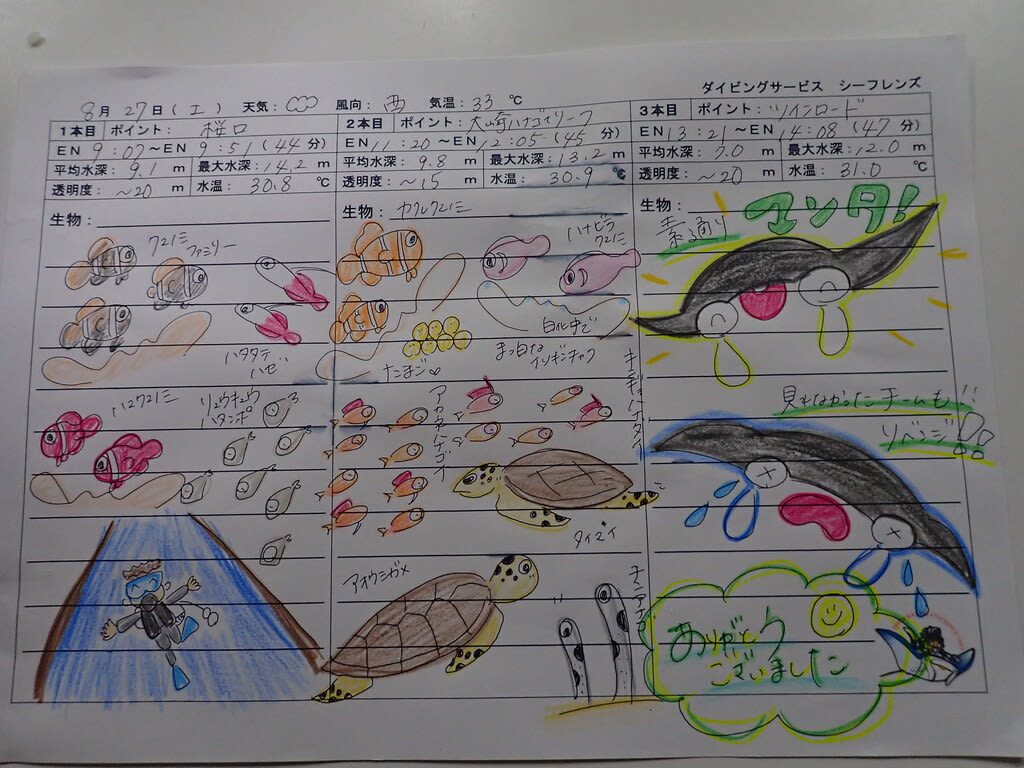 ダイビングサービス シーフレンズ
8月27日(土) 天気: 風向:西 気温:33℃
1本目 ポイント:桜口
EN 9:07~EN 9:51(44分)
平均水深:9.1m 最大水深:14.2m
透明度:~20m 水温:30.8℃
生物:
クマノミ
ファミリー
ハタタテ
ハゼ
ハマクマノミ
リュウキュウ
ハタンポ
2本目 ポイント:大崎ハナゴイリーフ
EN 11:20~EN 12:05(45分)
平均水深:9.8m 最大水深:13.2m
透明度:~15m 水温:30.9℃
生物:カクレクマノミ
ハナビラ
クマノミ
白化中で
まっ白な
イソギンチャク
たまご
アカネハナゴイ
キンギョハナダイ
タイマイ
アオウミガメ
チンアナゴ
3本目 ポイント:ツインロード
EN 13:21~EN 14:08(47分)
平均水深:7.0m 最大水深:12.0m
透明度:~20m 水温:31.0℃
生物:
マンタ!
素通り
見れなかったチームも!!
リベンジ!!
ありがとう
ございました